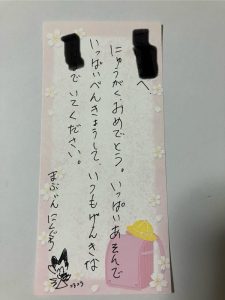 へ.
にゅうがくおめでとう。いっぱいあそんで
いっぱいべんきょうして、いつもげんきな
でいてください。
まぶんにんぐる